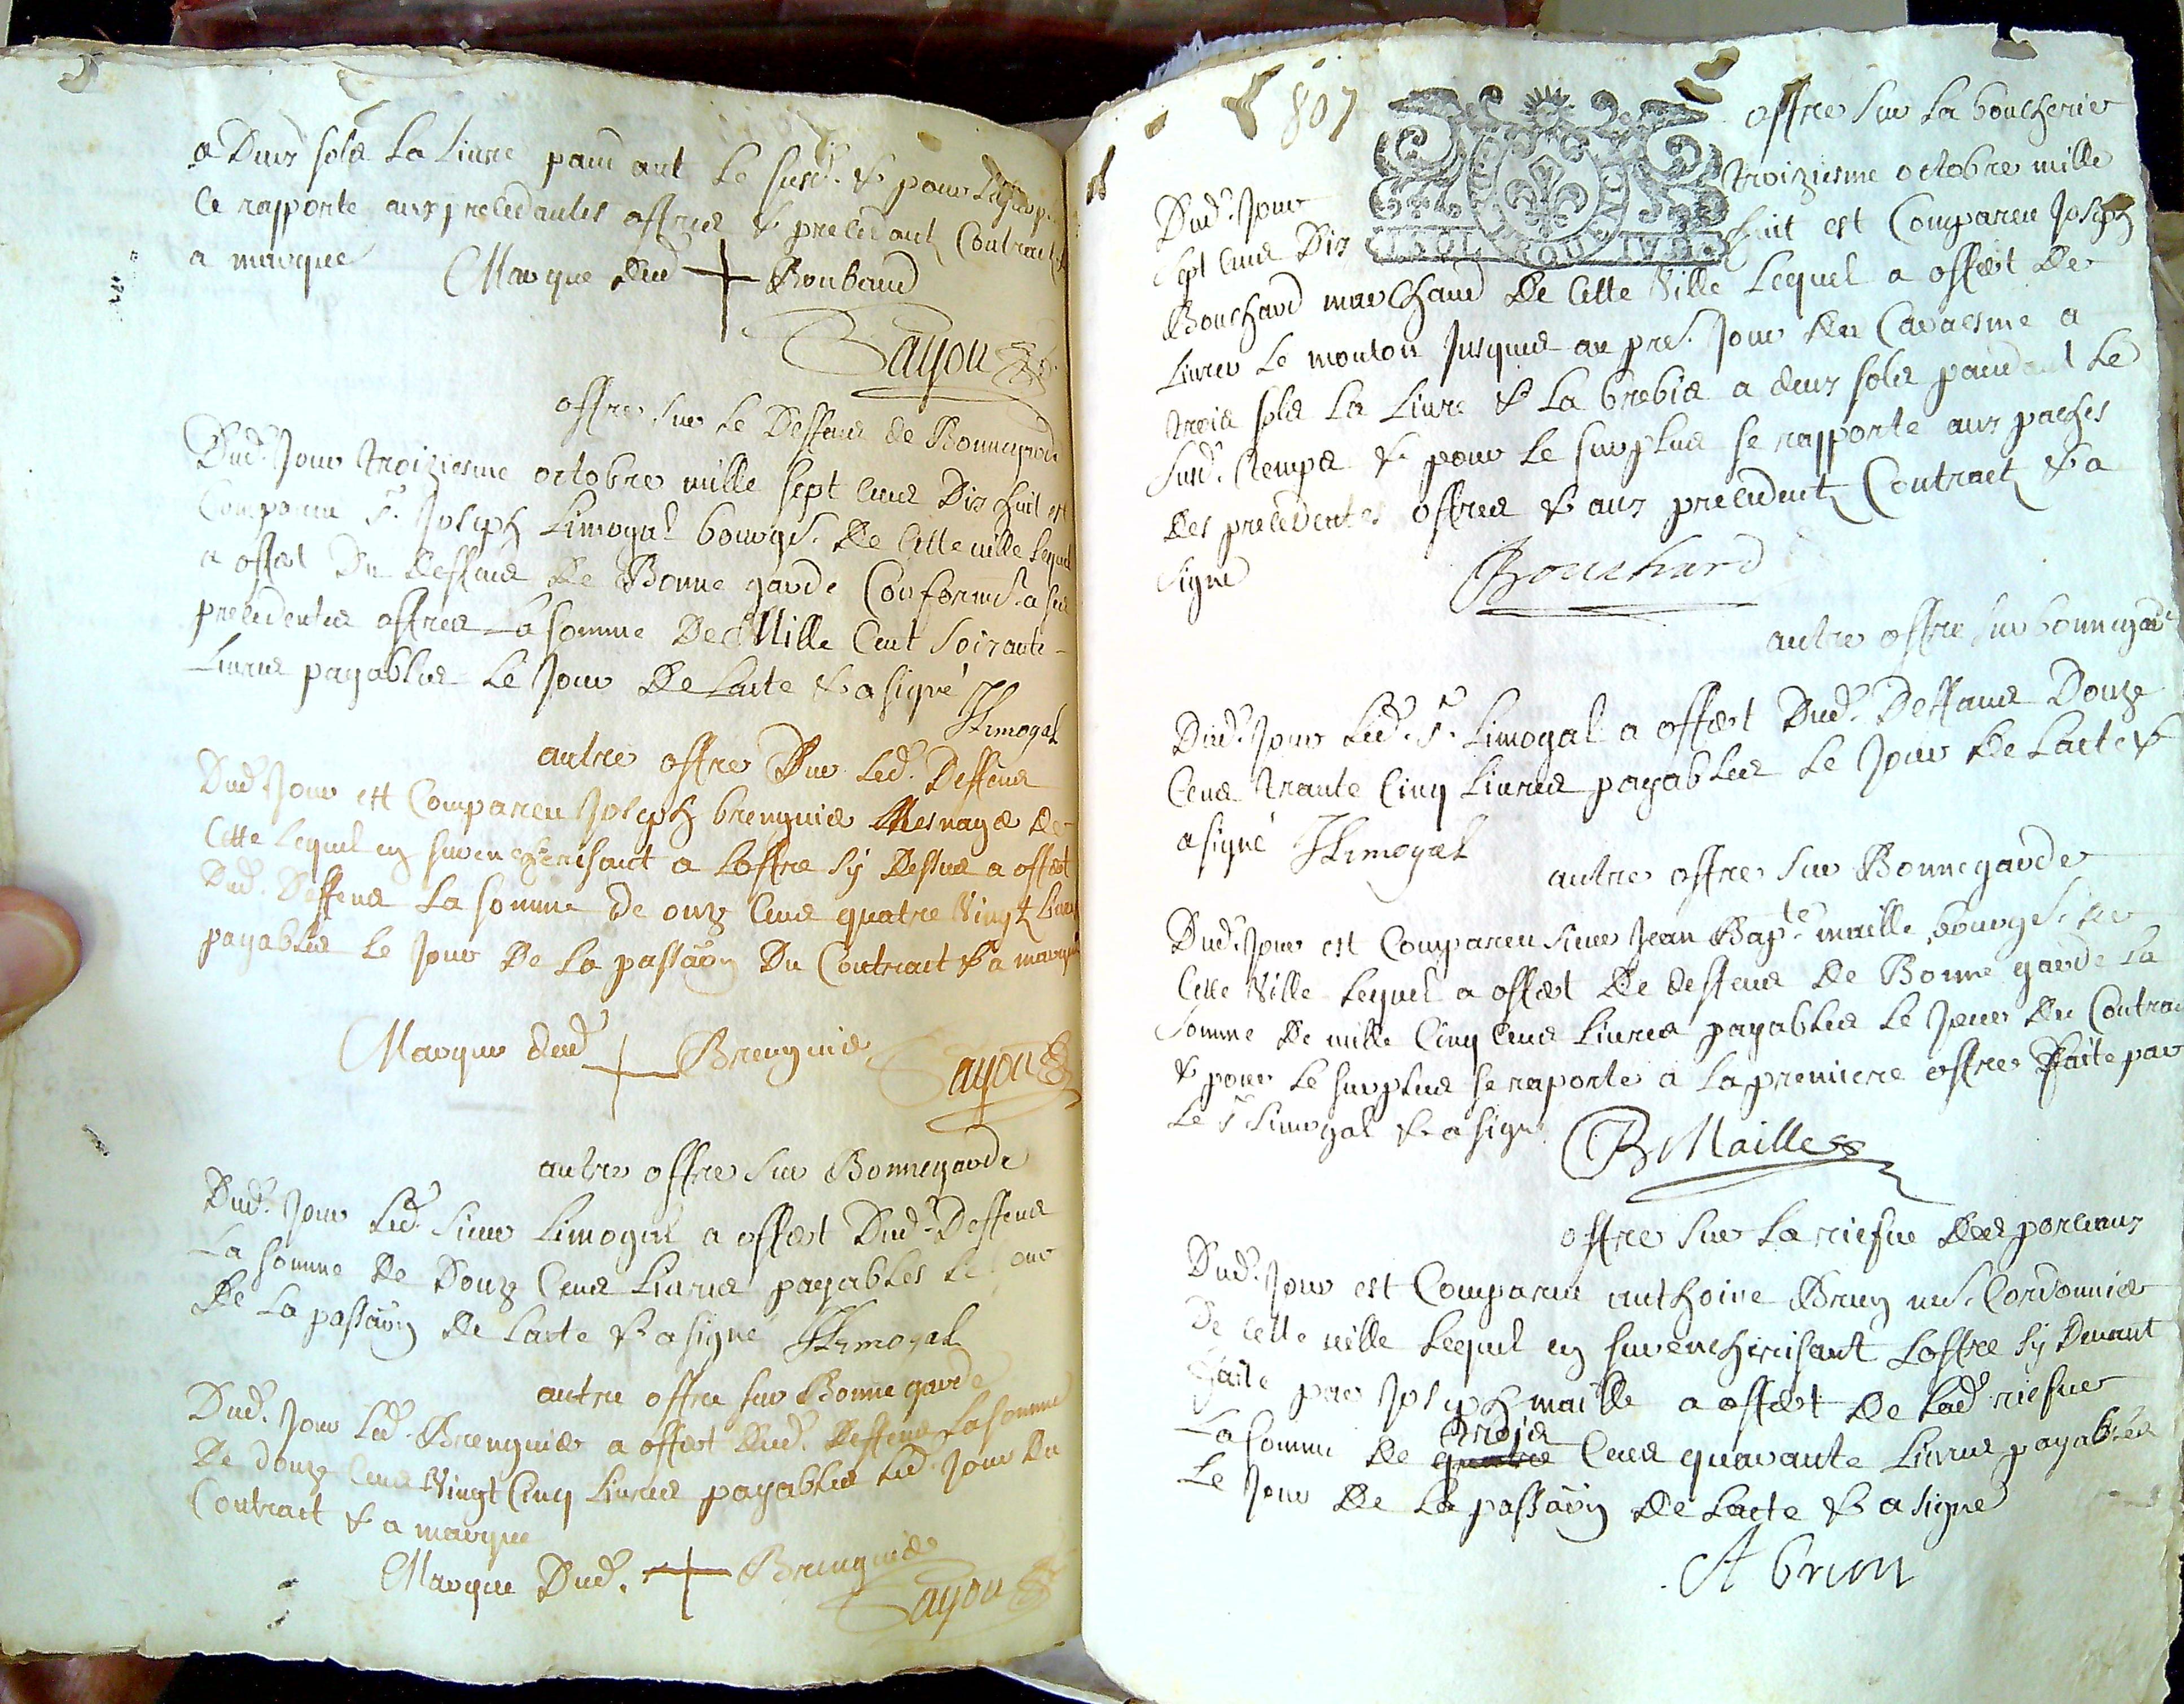 a Deux sols La Liure pand ant Le susd.t & pour Lesurp.
Ce rapporte aux precedantes offres & precedant Contract &
a marqué
Marque dud + Roubaud
Sayou
offre sur Le Deffens de Bonnegarde
Dud. Jour troiziesme octobre mille sept cens Dix huit est
Comparu Sr. Joseph Limogal bourgs. De Cette uille Lequel
a offert Du deffens De Bonne garde Conformt. a ses
precedentes offres La somme De Mille Cent Soixante
Liures payables Le Jour De Lacte & a signé
JLimogal
autre offre Sur Led. Deffens
Dud Jour est Compareu Joseph brenguier Mesnager de
Cette Lequel en surencherisant a Loffre sy Dessus a offert
Dud. Deffens La somme de onze Cens quatre Vingt Liures
payables Le Jour De La passaõn Du Contract & a marqué
Marque dud + Brenguier
Sayou
autre offre sur Bonnegarde
Dud. Jour Led. sieur Limogal a offert Dud. Deffens
La somme De Douze Cens Liures payables Le Jour
De La passaõn De Lacte & a signé JLimogal
autre offre sur Bonne garde
Dud. Jour Led. Brenguier a offert dud. Deffens La somme
De douze Cens Vingt Cinq Liures payables Led. Jour Du
Contract & a marqué
Marque Dud. + Brenguier
Sayou
807
offre sur La boucherie
Dud. Jour troiziesme octobre mille
sept Cens Dix huit est Compareu Joseph
Bouchard marchand De Cette Ville Lequel a offert De
Liurer Le mouton Jusques au pre. Jour du Caresme a
trois sols La Liure & La brebis a deux sols pandant Le
susd. temps & pour Le surplus se rapporte aux paches
Des precedentes offres & aux precedent Contract & a
signé
Bouchard
autre offre sur bonnegarde
Dud. Jour Led. Sr. Limogal a offert Dud. Deffans Douze
Cens trante Cinq Liures payables Le Jour De Lacte &
a signé JLimogal
autre offre sur Bonnegarde
Dud. Jour est Compareu sieur Jean Bapte. maille bourgs. de
Cette Ville Lequel a offert De deffens De Bonne garde La
somme De mille Cinq Cens Liures payables Le Jour Du Contract
& pour Le surplus se raporte a La premiere offre faite par
Le Sr Limogal & a signé
BMaille
offre sur La riefue Des porceaux
Dud. Jour est Comparu anthoine Brun me. Cordonnier
De cette uille Lequel en surencherisant Loffre sy Devant
faite par Joseph maille a offert De Lad riefue
trois
La somme De quatre Cens quarante Liures payables
Le Jour De La passaõn De Lacte & a signé
A brun